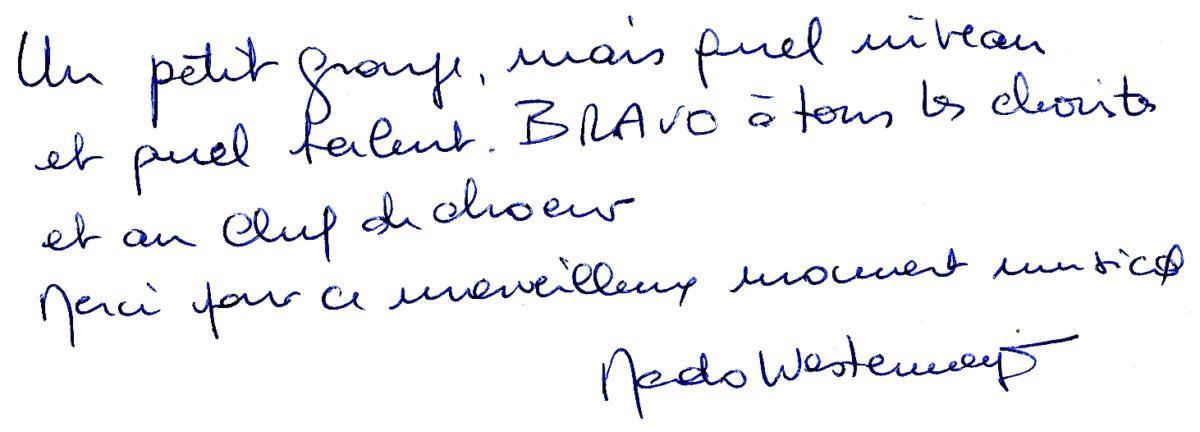 Un petit groupe, mais quel niveau
et quel talent. BRAVO à tous les choristes
et au Chef de choeur
Merci pour ce merveilleux moment musical
Mado Westermeyer